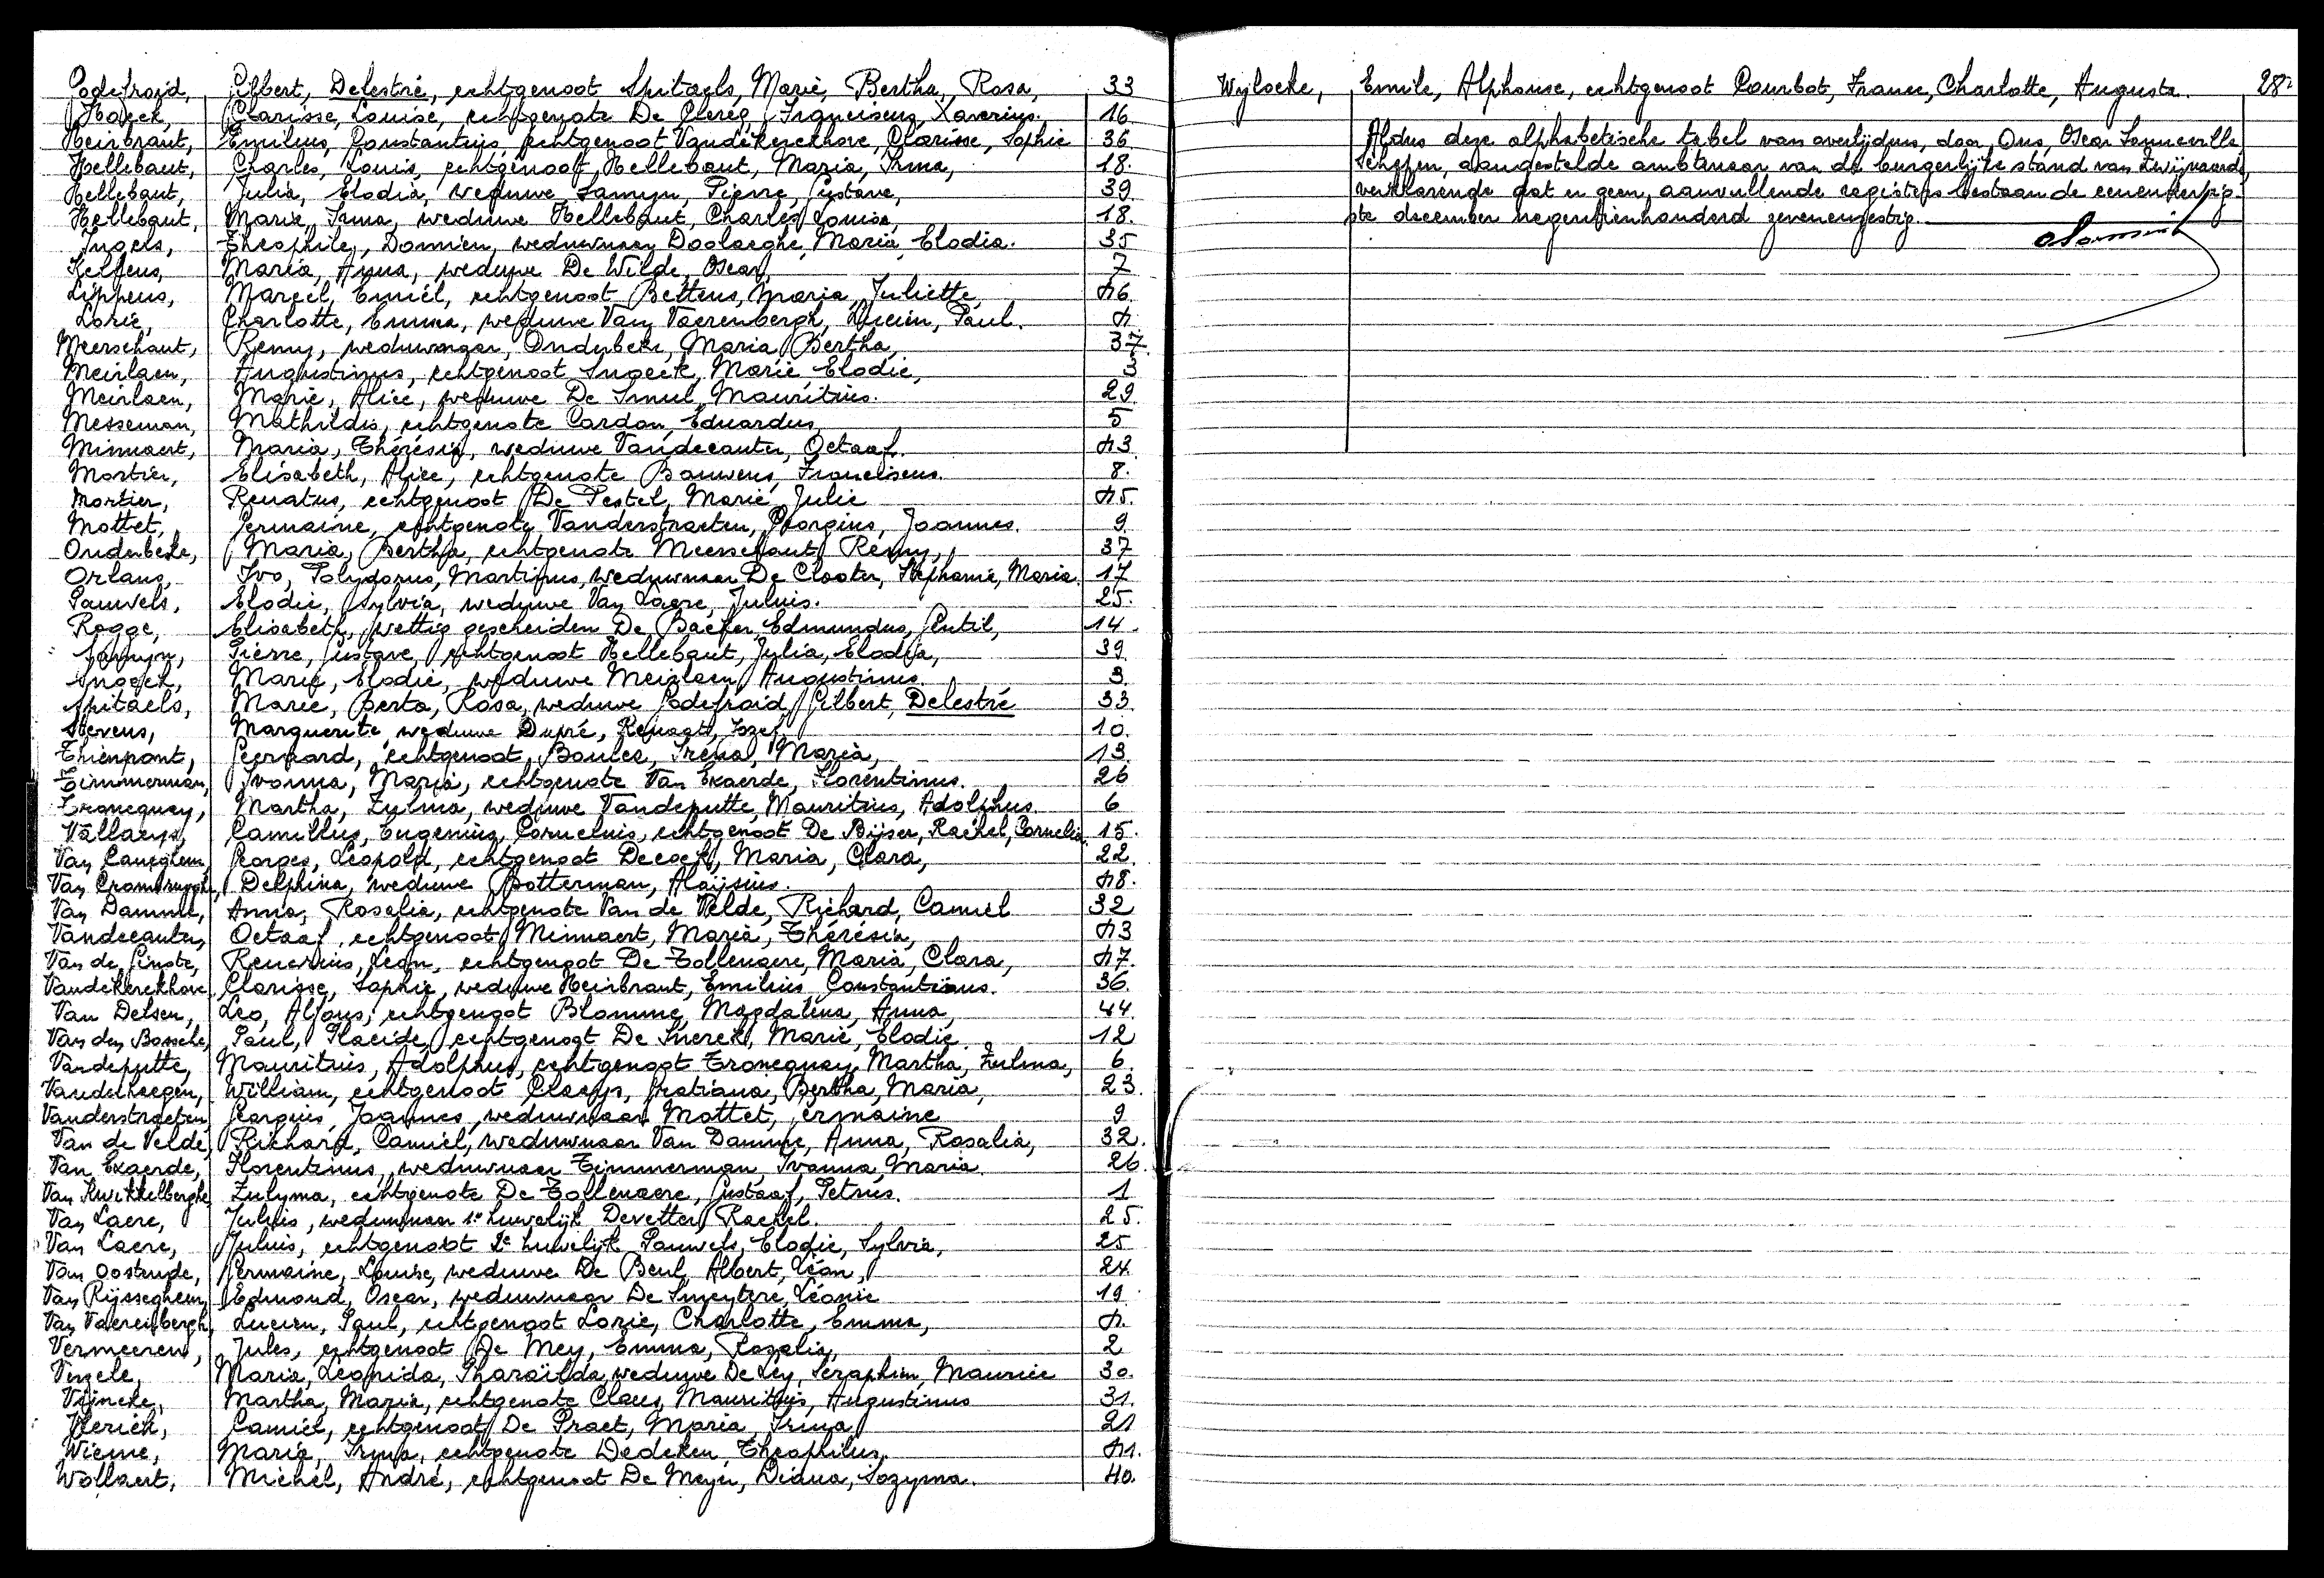 Godefroid, Gilbert, Delestré, echtgenoot Spitaels, Marie, Bertha, Rosa, 33
Haeck, Clarisse, Louise, echtgenote De Clercq, Franciscus, Xaverius. 16
Heirbraut, Emilius, Constantius, echtgenoot Vandekerckhove, Clarisse, Sophie 36
Hellebaut, Charles, Louis, echtgenoot Hellebaut, Maria, Irma, 18.
Hellebaut, Julia, Elodia, weduwe Samyn, Pierre, Gustave, 39
Hellebaut, Maria, Irma, weduwe Hellebaut, Charles, Louis, 18.
Ingels, Théophile, Damien, weduwnaar Doolaeghe, Maria, Elodia. 35
Kelfens, Maria, Anna, weduwe De Wilde, Oscar, 7
Lippens, Marcel, Emiel, echtgenoot Bettens, Maria, Juliette, 46.
Lorie, Charlotte, Emma, weduwe Van Vaerenbergh, Lucien, Paul. 4
Meerschaut, Remy, weduwnaar, Onderbeke, Maria, Bertha, 37.
Meirlaen, Augustinus, echtgenoot Snoeck, Marie, Elodie, 3
Meirlaen, Marie, Alice, weduwe De Smul, Mauritius. 29
Messeman, Mathildis, echtgenote Cardon, Eduardus, 5
Minnaert, Maria, Thérésia, weduwe Vandecauter, Octaaf. 43
Mortier, Elisabeth, Alice, echtgenote Bauwens, Franciscus. 8.
Mortier, Renatus, echtgenoot De Pestel, Marie, Julie 45.
Mottet, Germaine, echtgenote Vanderstraeten, Georgius, Joannes. 9
Onderbeke, Maria, Bertha, echtgenote Meerschaut, Remy, 37
Orlans, Ivo, Polydorus, Martinus, weduwnaar De Clooter, Stephanie, Maria. 17
Pauwels, Elodie, Sylvia, weduwe Van Laere, Julius. 25.
Rogge, Elisabeth, wettig gescheiden De Backer, Edmundus, Gentil, 14.
Samyn, Pierre, Gustave, echtgenoot Hellebaut, Julia, Elodia, 39
Snoeck, Marie, Elodie, weduwe Meirlaen, Augustinus. 3.
Spitaels, Marie, Berta, Rosa, weduwe Godefroid, Gilbert, Delestré 33.
Stevens, Marguerite, weduwe Dupré, Renaat, Jozef, 10.
Thienpont, Geeraard, echtgenoot Baules, Iréna, Maria, 13
Timmerman, Ivonna, Maria, echtgenote Van Exaerde, Florentinus. 26
Troncquay, Martha, Zulma, weduwe Vandeputte, Mauritius, Adolphus. 6
Vallaeys, Camillus, Eugenius, Cornelius, echtgenoot De Bijser, Rachel, Cornelia. 15.
Van Caneghem, Georges, Leopold, echtgenoot Decock, Maria, Clara, 22.
Van Crombrugghe, Delphina, weduwe Botterman, Aloijsius. 48.
Van Damme, Anna, Rosalia, echtgenote Van de Velde, Richard, Camiel 32
Vandecauter, Octaaf, echtgenoot Minnaert, Maria, Thérésia, 43
Van de Ginste, Renerius, Leon, echtgenoot De Tollenaere, Maria, Clara, 47.
Vandekerckhove, Clarisse, Sophie, weduwe Heirbraut, Emilius, Constantinus. 36.
Van Delsen, Leo, Alfons, echtgenoot Blomme, Magdalena, Anna, 44.
Van den Bossche, Paul, Placide, echtgenoot De Snerck, Marie, Elodie. 12
Vandeputte, Mauritius, Adolphus, echtgenoot Troncquay, Martha, Zulma, 6.
Vanderheegen, William, echtgenoot Claeys, Gratiana, Bertha, Maria, 23.
Vanderstraeten, Georgius, Joannes, weduwnaar Mottet, Germaine 9
Van de Velde, Richard, Camiel, weduwnaar Van Damme, Anna, Rosalia, 32.
Van Exaerde, Florentinus, weduwnaar Timmerman, Ivonna, Maria. 26.
Van Kwikkelberghe, Zulyma, echtgenote De Tollenaere, Gustaaf, Petrus. 1
Van Laere, Julius, weduwnaar 1e huwelijk Devetter, Rachel. 25.
Van Laere, Julius, echtgenoot 2e huwelijk Pauwels, Elodie, Sylvia, 25
Van Oostende, Germaine, Louise, weduwe De Beul, Albert, Léon, 24
Van Rijsseghem, Edmond, Oscar, weduwnaar De Smeytere, Léonie 19
Van Vaerenbergh, Lucien, Paul, echtgenoot Lorie, Charlotte, Emma, 4.
Vermeeren, Jules, echtgenoot De Mey, Emma, Rosalia, 2
Verzele, Maria, Leonida, Pharaïlda, weduwe De Ley, Seraphin, Maurice 30.
Vijncke, Martha, Maria, echtgenote Claus, Mauritius, Augustinus 31.
Camiel, echtgenoot De Praet, Maria, Irma, 21
Wieme, Marie, Irma, echtgenote Dedeken, Théophilus, 41.
Wollaert, Michel, André, echtgenoot De Meyer, Diana, Sozyma. 40.
Wylocke, Emile, Alphonse, echtgenoot Courbot, France, Charlotte, Augusta. 28.
Aldus deze alphabetische tabel van overlijdens, door Ons, Oscar Sonneville
Schepen, aangestelde ambtenaar van de burgerlijke stand van Zwijnaarde,
verklarende dat er geen aanvullende registers bestaan de eenendertig-
ste december negentienhonderd zevenenzestig.